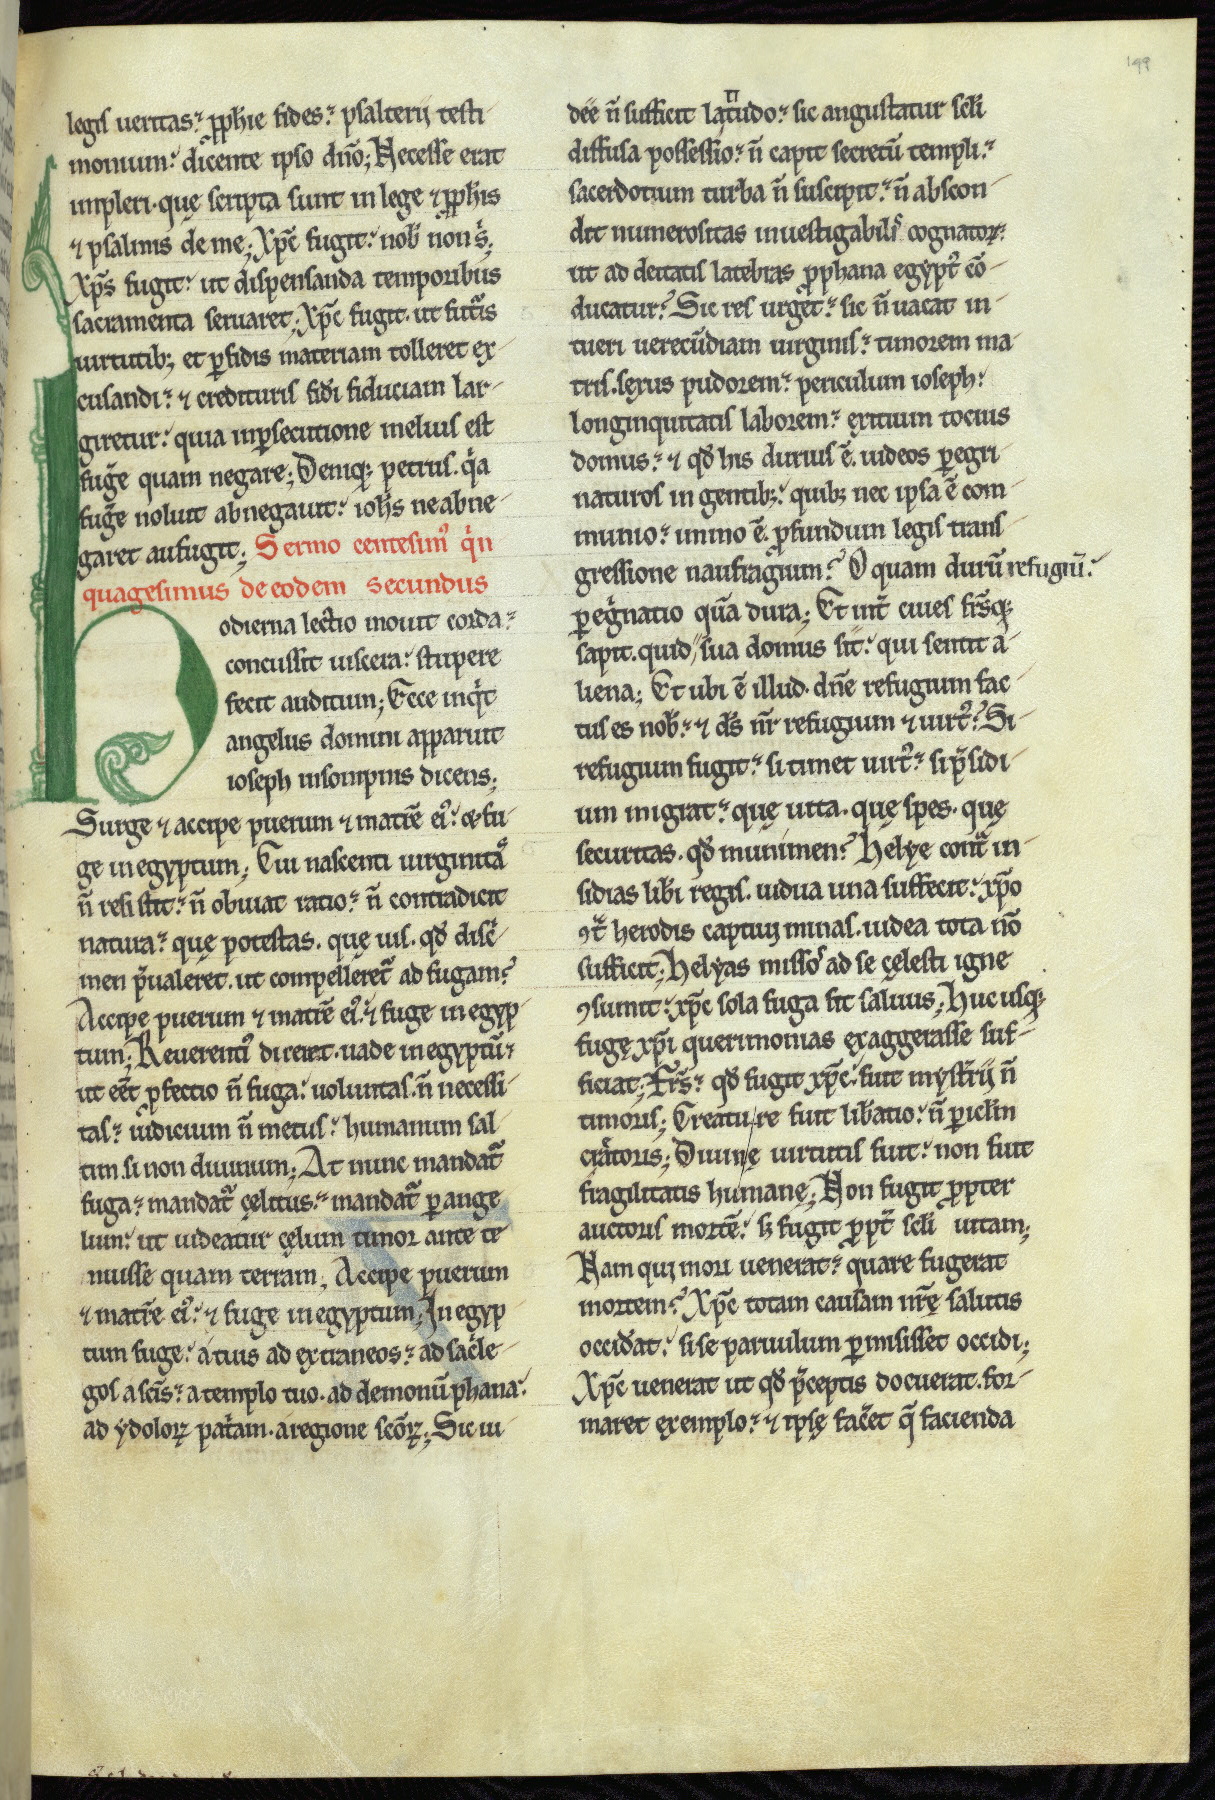 199
legis ueritas? ꝓph̄ie fides? psalterij testi
monium? dicente ipso dn̄o; Necesse erat
impleri· quę scripta sunt in lege ⁊ ꝓph̄is
⁊ psalmis de me; Xp̄c fugit? nob̄ non s̄;
Xp̄s fugit? ut dispensanda temporibus
sacramenta seruaret; Xp̄c fugit· ut futūis
uirtutib; et ꝑfidis materiam tolleret ex-
cusandi? ⁊ credituris fid̄i fiduciam lar-
giretur? quia inꝑsecutione melius est
fuḡe quam negare; Deniq; petrus· q̄a
fuḡe noluit abnegauit? ioh̄s ne abne-
garet aufugit; Sermo centesim᷒ q̄n
quagesimus de eodem secundus
Hodierna lectio mouit corda?
concussit uiscera? stupere
fecit auditum; Ecce inq̄t
angelus domini apparuit
ioseph insompnis dicens;
Surge ⁊ accipe puerum ⁊ matrē ei᷒? & fu-
ge in egyptum; Cui nascenti uirginitā
n̄ resistit? n̄ obuiat ratio? n̄ contradicit
natura? quę potestas· quę uis· qđ disc̄-
men p̄ualeret· ut compelleret̄ ad fugam?
Accipe puerum ⁊ matrē ei᷒? ⁊ fuge in egyp
tum; Reuerenti᷒ diceret· uade in egyptū?
ut eēt ꝓfectio n̄ fuga? uoluntas· n̄ necessi-
tas? iudicium n̄ metus? humanum sal
tim· si non diuinum; At nunc mandat̄
fuga? mandat̄ cęlitus? mandat̄ ꝑ ange
lum? ut uideatur cęlum timor ante te
nuisse quam terram; Accipe puerum
⁊ matrē ei᷒? ⁊ fuge in egyptum; In egyp
tum fuge? a tuis ad extraneos? ad sac̄le-
gos a sc̄is? a templo tuo· ad demonū phana?
ad ydoloꝝ pat̄am· a regione sc̄oꝝ; Sic iu-
dęę n̄ sufficit latitudo? sic angustatur scl̄i
diffusa possessio? n̄ capit secretū templi?
sacerdotium turba n̄ suscipit? n̄ abscon-
dit numerositas inuestigabilis cognatoꝝ?
ut ad deitatis latebras ꝓphana egypt᷒ cō-
ducatur? Sic res urget? sic n̄ uacat in-
tueri uerecūdiam uirginis? timorem ma-
tris· sexus pudorem? periculum ioseph?
longinquitatis laborem? exitium tocius
domus? ⁊ qđ his durius ē· iudeos ꝑegri-
naturos in gentib;? quib; nec ipsa ē com-
munio? immo ē· ꝓfundum legis trans-
gressione naufragium? O quam durū refugiū?
ꝑeḡnatio quā dura; Et int̄ ciues fr̄sq;
sapit· quid sua domus sit? qui sentit a-
liena; Et ubi ē illud· dn̄e refugium fac-
tus es nob̄? ⁊ ds̄ nr̄ refugium ⁊ uirt᷒? Si
refugium fugit? si timet uirt᷒? si p̄sidi-
um migrat? quę uita· quę spes· quę
securitas· qđ munimen? Helye cont̄ in-
sidias lib̄i regis· uidua una suffecit? xp̄o
ꝯt̄ herodis captiuj minas· iudea tota nō
sufficit; Helyas misso᷒ ad se cęlesti igne
ꝯsumit? xp̄c sola fuga fit saluus; Huc usq;
fugę xp̄i querimonias exaggerasse suf-
ficiat; Fr̄s? qđ fugit xp̄c? fuit myst̄rij n̄
timoris; Creaturę fuit lib̄atio? n̄ ꝑicl̄m
c̄atoris; Diuinę uirtutis fuit? non fuit
fragilitatis humanę; Non fugit ꝓpter
auctoris mortē? s; fugit ꝓpt̄ scl̄i uitam;
Nam quj mori uenerat? quare fugerat
mortem? Xp̄c totam causam nr̄ę salutis
occiđat? si se paruulum ꝑmisisset occidi;
Xp̄c uenerat ut qđ p̄ceptis docuerat· for-
maret exemplo? ⁊ ipsę fac̄et q̄ facienda